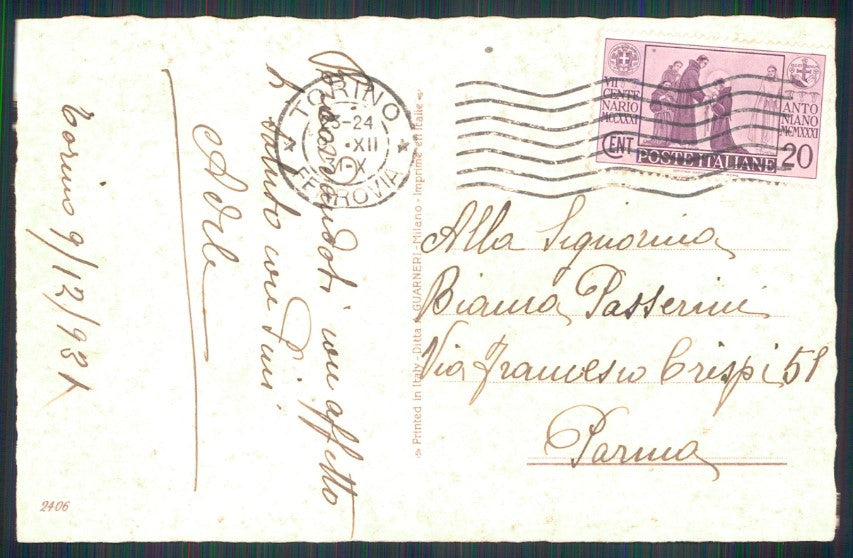 Torino 9/12/931
Ricordandoti con affetto
ti saluto con
Adele
TORINO
FERROVIA
23-24
XII
X
VII
CENTE
NARIO
MCCXXXI
ANTO
NIANO
MCMXXXI
CENT
POSTE ITALIANE 20
Alla Signorina
Bianca Passerini
Via Francesco Crispi 51
Parma
Printed in Italy - Ditta GUARNERI - Milano - Imprimé en Italie
2406